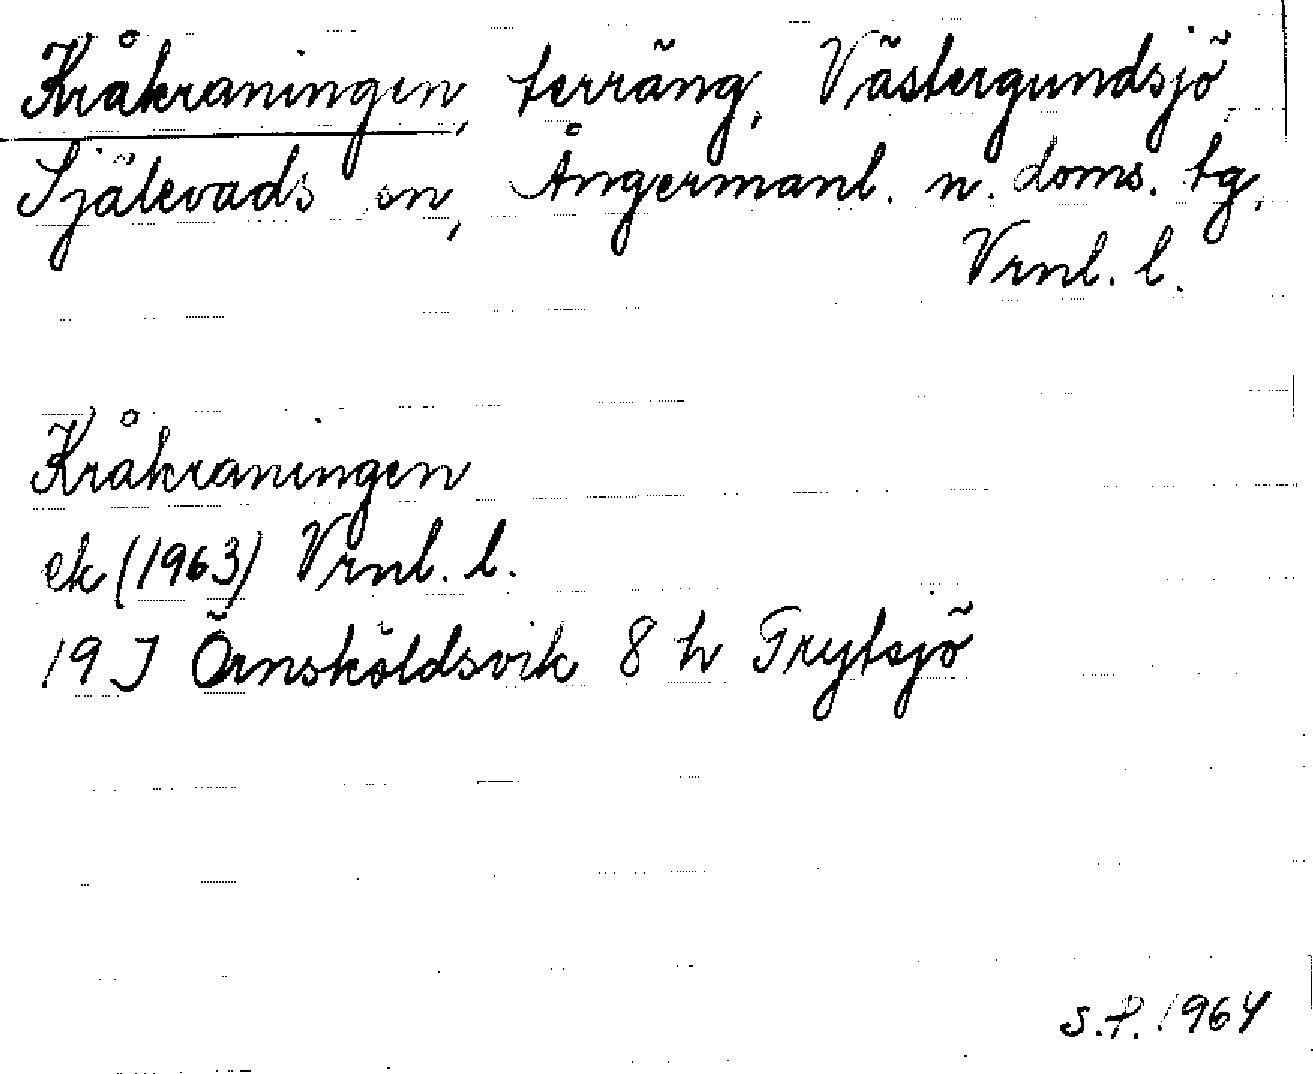 Kråkraningen, terräng, Västergundsjö
Själevads sn, Ångermanl. n. doms. tg,
Vrnl. l.
Kråkraningen
ek (1963) Vrnl. l.
19 J Örnsköldsvik 8 h Frytsjö
S.P. 1964